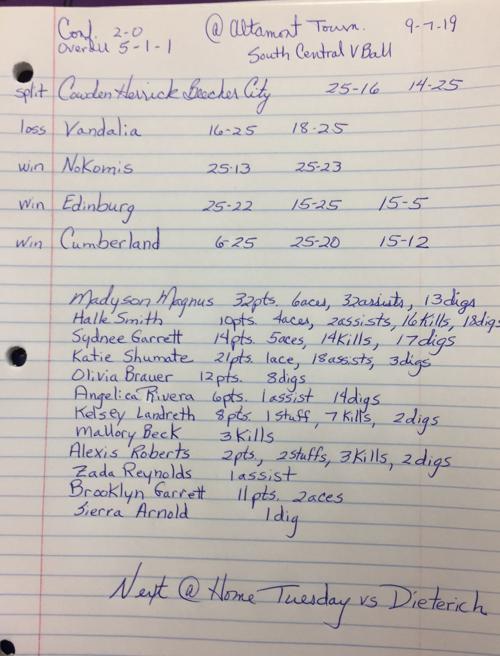 Conf. 2-0 @ Altamont Tourn. 9-7-19
overall 5-1-1 South Central VBall
split Cowden Herrick Beecher City 25-16 14-25
loss Vandalia 16-25 18-25
win Nokomis 25-13 25-23
win Edinburg 25-22 15-25 15-5
win Cumberland 6-25 25-20 15-12
Madyson Magnus 32pts. 6aces, 32assists, 13digs
Halle Smith 10pts. 4aces, 2assists, 16Kills, 18digs
Sydnee Garrett 14pts. 5aces, 14Kills, 17digs
Katie Shumate 21pts. 1ace, 18assists, 3digs
Olivia Brauer 12pts. 8digs
Angelica Rivera 6pts. 1assist 14digs
Kelsey Landreth 8pts. 1stuff, 7Kills, 2digs
Mallory Beck 3Kills
Alexis Roberts 2pts, 2stuffs, 3Kills, 2digs
Zada Reynolds 1assist
Brooklyn Garrett 11pts. 2aces
Sierra Arnold 1dig
Next @ Home Tuesday vs Dieterich